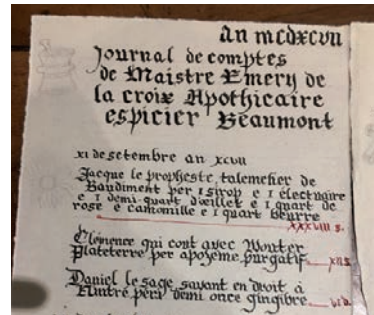 an mcdxcvii
Journal de comptes
de Maistre Emery de
la croix Apothicaire
espicier Beaumont
xi de setembre an xcvii
Jacque le propheste talemelier de
Baudiment per 1 sirop e 1 électuaire
e 1 demi-quart d'œillet e 1 quart de
rose e camomille e 1 quart beurre
xxxviii s.
Clémence qui cout avec Wouter
Plateterre per apozeme purgatif xii s.
Daniel le sage savant en droit à
peri demi once gingibre